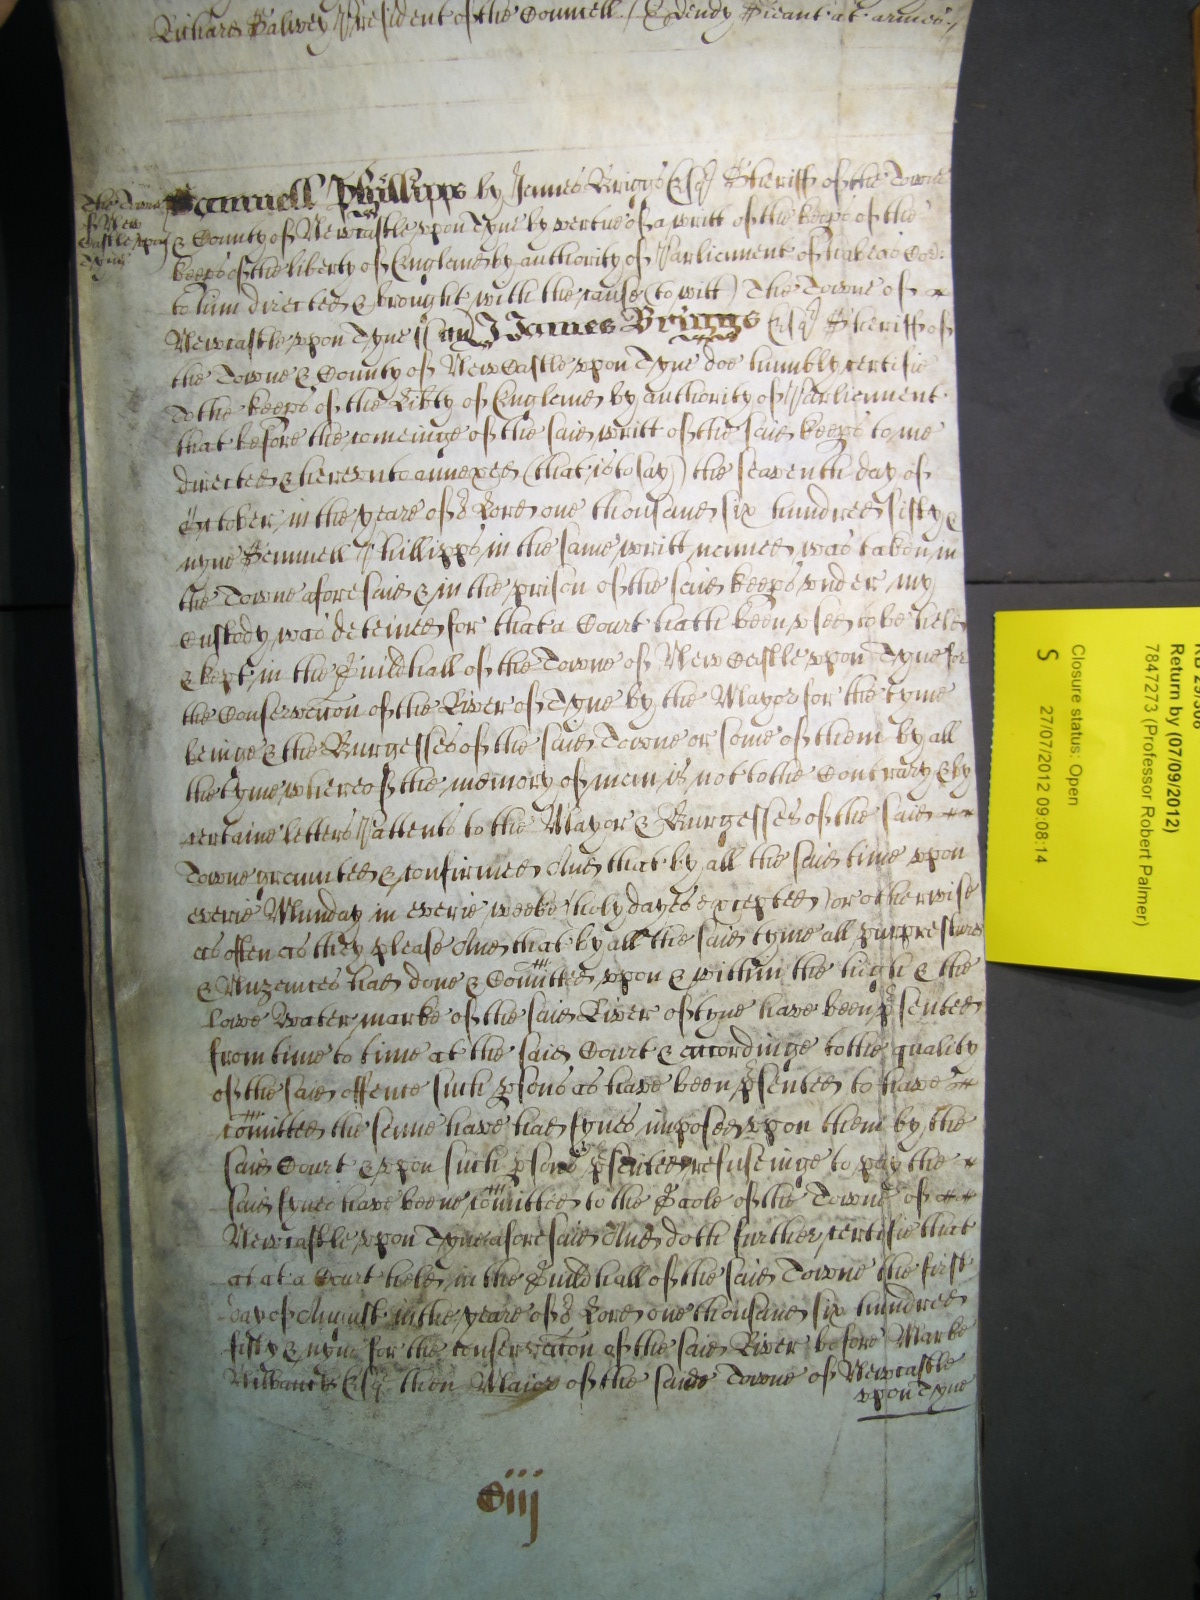 Richard Salwey President of the Councell / E Dendy Sieant at armes /
The Towne of New Castle vpon Tyne
Samuell Phillipps by James Briggs Esqr Sheriff of the Towne
& County of Newcastle vpon Tyne by vertue of a writt of the keeps of the
keeps of the liberty of England by authority of Parliament of habeas Cor:
to him directed & brought with the cause (to witt) The Towne of
Newcastle vpon Tyne ss I James Briggs Esqr Sheriff of
the Towne & County of NewCastle vpon Tyne doe humbly certifie
To the keeps of the Libty of England by authority of Parliament
that before the comeinge of the said writt of the said keeps to me
directed & herevnto annexed (that is to say) the seaventh day of
October in the yeare of or Lord one thousand six hundred fifty &
nyne Samuell Phillipps in the same writt named was taken in
the Towne aforesaid & in the prison of the said keeps vnder my
Custody was deteined for that a Court hath been vsed to be held
& kept in the Guildhall of the Towne of NewCastle vpon Tyne for
the Conservacon of the River of Tyne by the Mayor for the tyme
beinge & the Burgesses of the said Towne or some of them by all
the tyme whereof the memory of man is not to the Contrary & by
certaine letters Pattents to the Mayor & Burgesses of the said
Towne graunted & confirmed And that by all the said time vpon
everie Munday in everie weeke (holy dayes excepted) or otherwise
as often as they please And that by all the said tyme all purprestures
& Nuzances had done & Comitted vpon & within the high & the
lowe Water marke of the said River of tyne have been psented
from time to time at the said Court & accordinge to the quality
of the said offence such psons as have been psented to have
comitted the same have had fynes imposed vpon them by the
said Court & vpon such psons psented refuseinge to pay the
said fynes have beene comitted to the Gaole of the Towne of
Newcastle vpon Tyne aforesaid And doth further certifie that
at at a Court held in the Guildhall of the said Towne the first
day of August in the yeare of or Lord one thousand six hundred
fifty & nyne for the conservacon of the said River before Marke
Milbancke Esqr then Maior of the saide Towne of Newcastle
vpon Tyne
Ciij
Return by (07/09/2012)
7847273 (Professor Robert Palmer)
Closure status: Open
S 27/07/2012 09:08:14